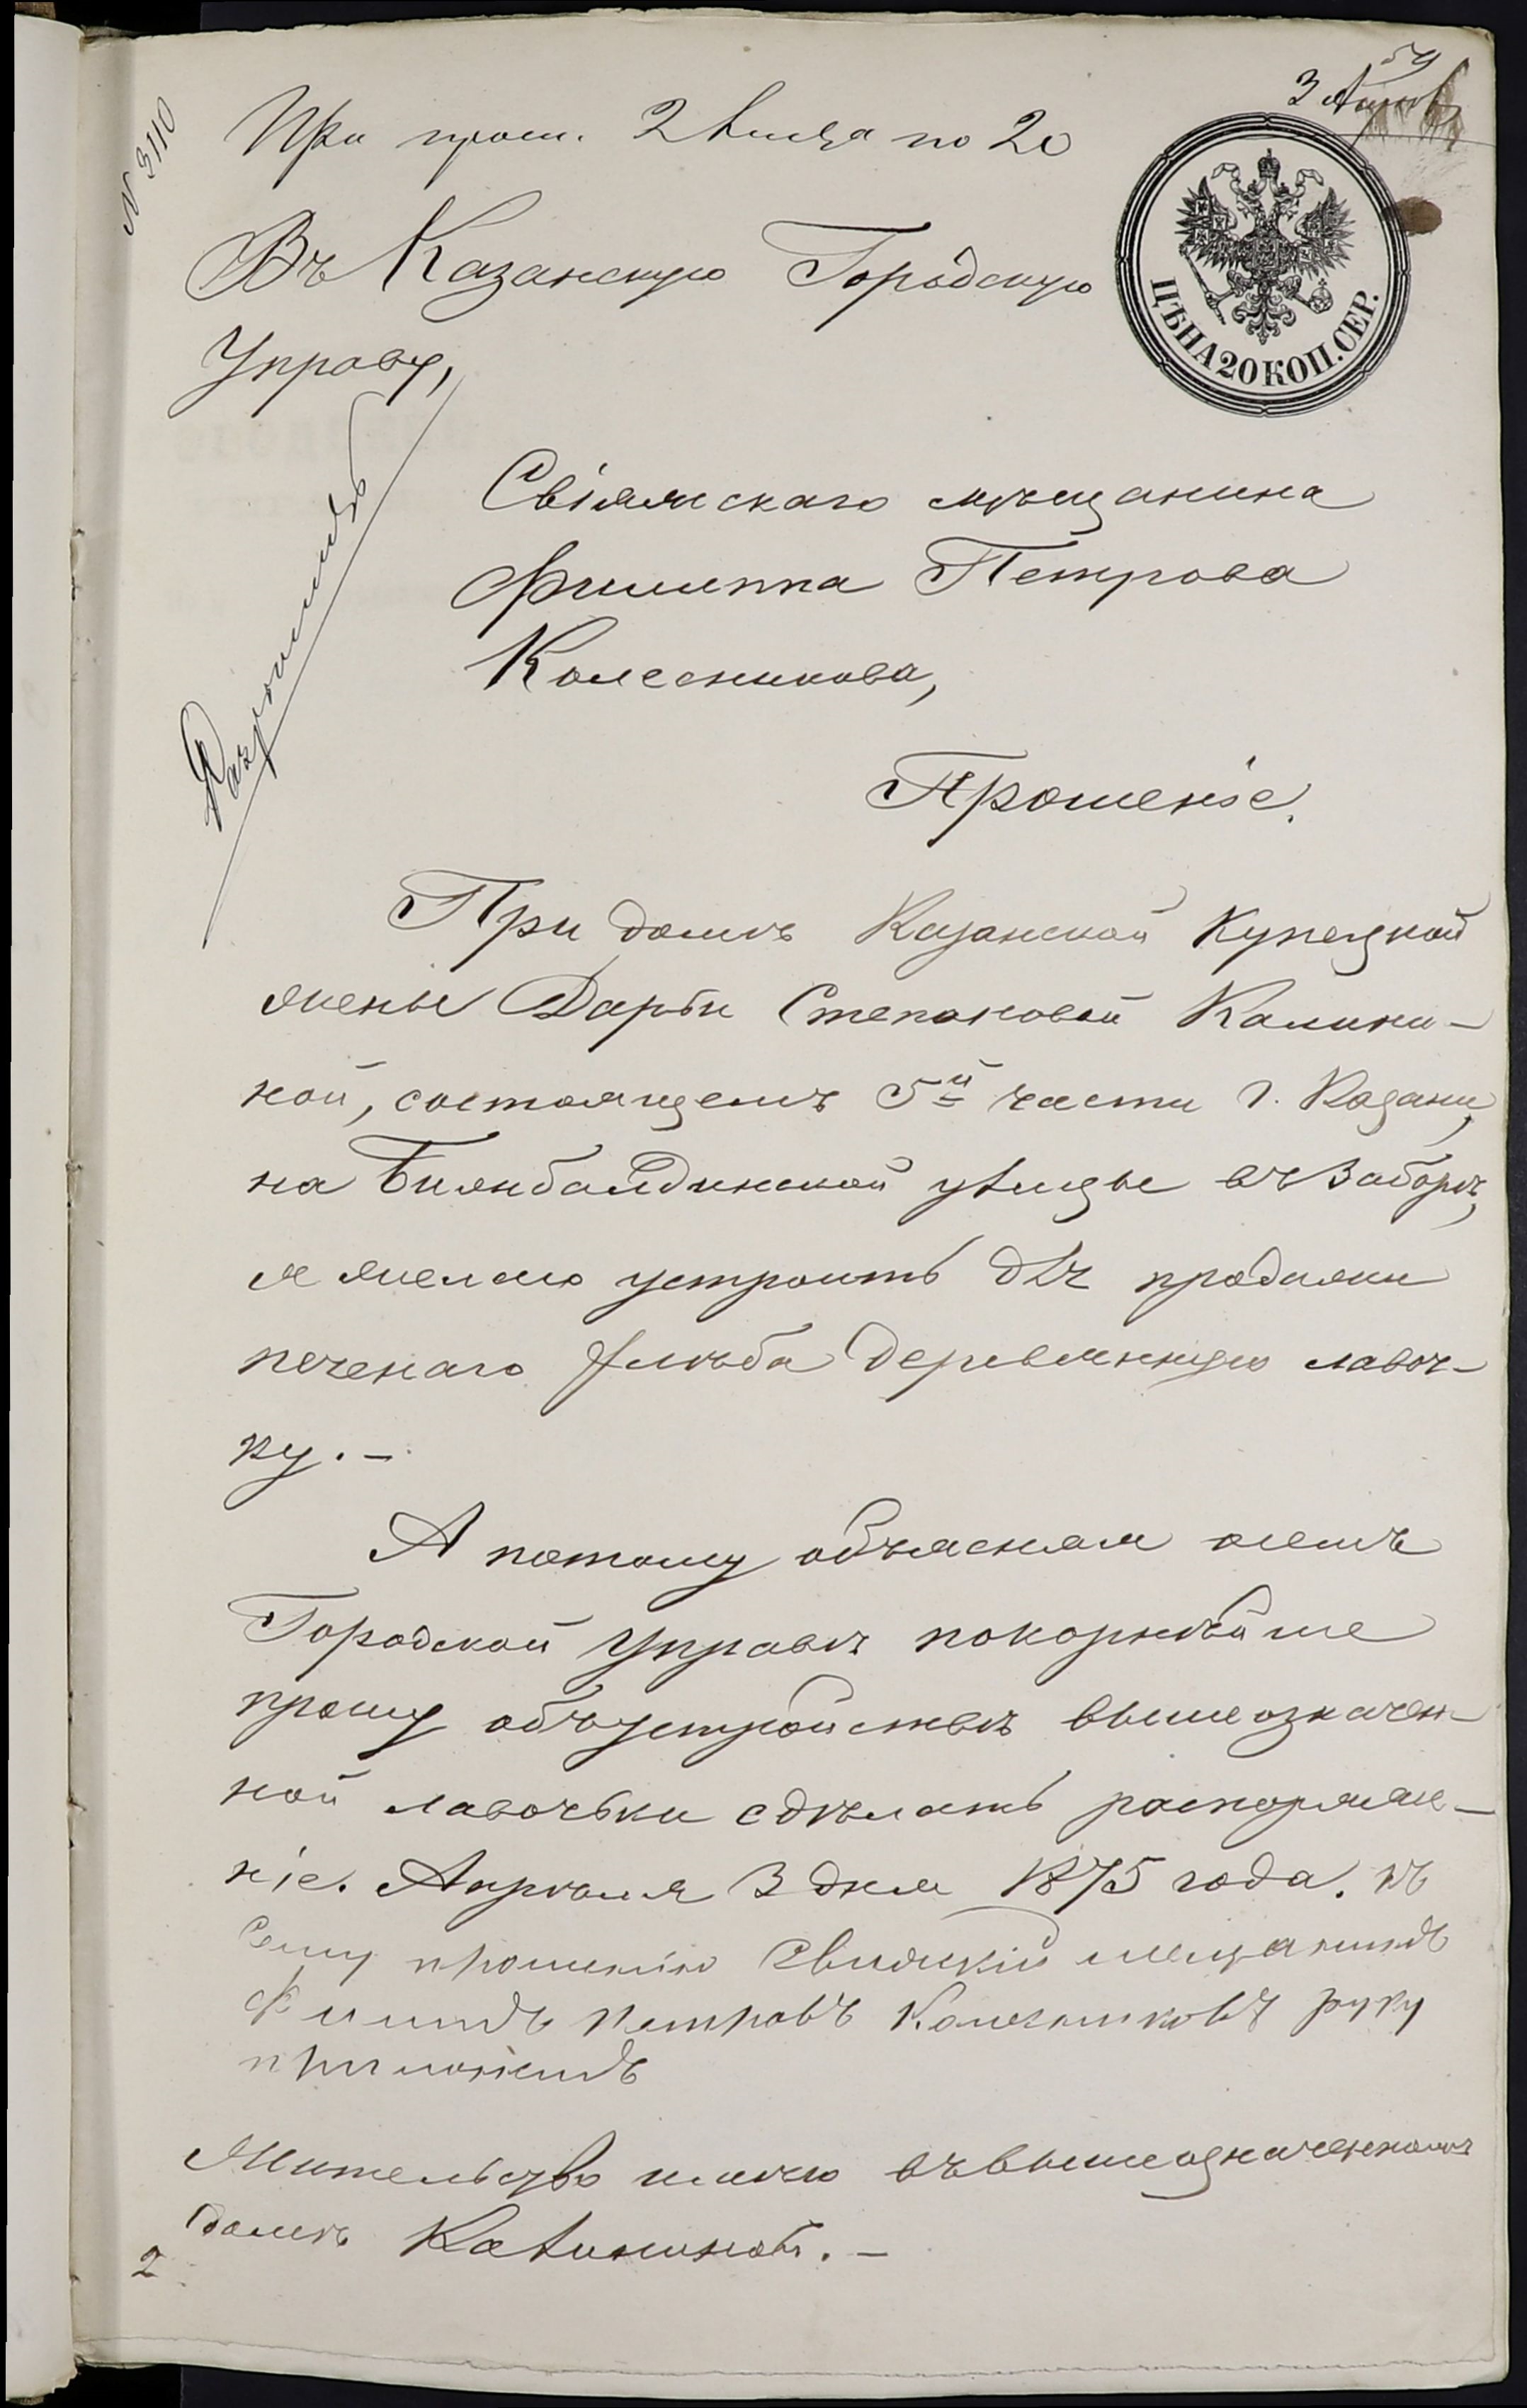 59
3 Апрѣля
№ 3110
При прош. 2 листа по 20
ЦѢНА 20 КОП. СЕР.
Въ Казанскую Городскую
Управу,
Разрѣшить
Свіяжскаго мѣщанина
Филиппа Петрова
Колесникова,
Прошеніе.
При домѣ Казанской Купецкой
жены Дарьи Степановой Калини-
ной, состоящемъ 5й части г. Казани,
на Биянбалдинской улицѣ въ Заборѣ,
я желаю устроить для продажи
печенаго хлѣба деревянную лавоч-
ку. –
А потому объясняя о семъ
Городской Управѣ покорнѣйше
прошу объ устройствѣ вышеозначен-
ной лавочьки сдѣлать распоряже-
ніе. Апрѣля 3 дня 1875 года. Къ
сему прошенію Свияжкій мещанинъ
Филипъ Петровъ Колесниковъ руку
приложилъ
Жительство имѣю въ вышеозначенномъ
домѣ Калининой. –
2